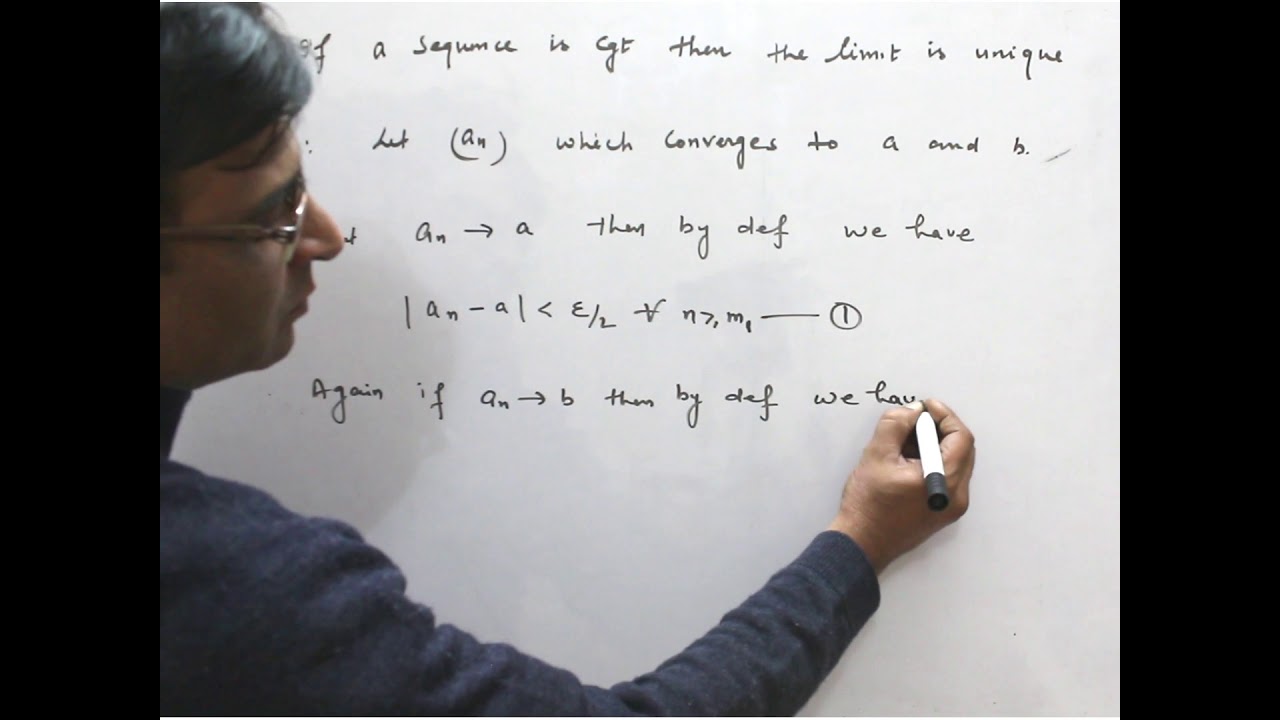 If a sequnce is Cgt then the limit is unique
: Let (an) which converges to a and b.
an → a then by def we have
| an - a | < ε/2 ∀ n ≥ m1 —— ①
Again if an → b then by def we hav